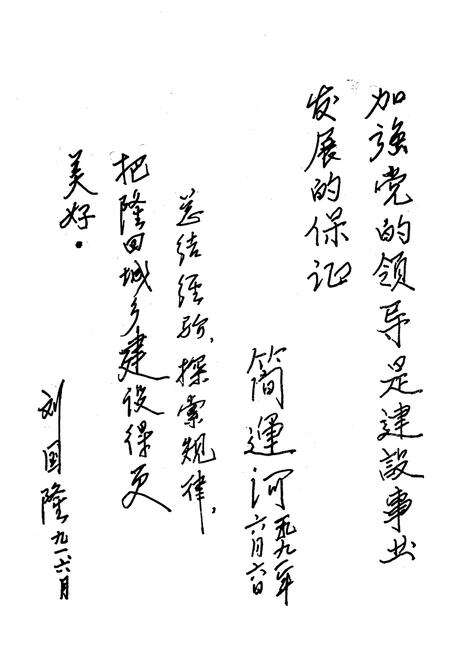 加強党的领导是建設事业
发展的保证
简運河
一九九一年
六月六日
总结经验，探索规律，
把隆回城乡建设得更
美好。
刘国隆 九一六月